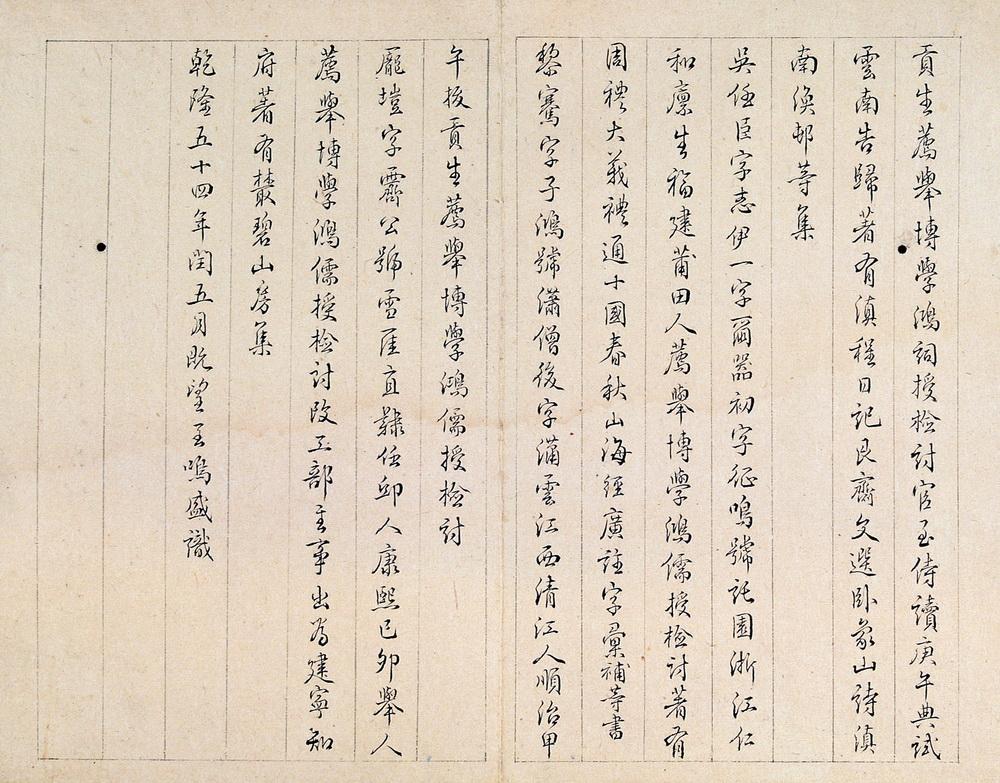 貢生薦舉博學鴻詞授檢討官至侍讀庚午典試
雲南告歸著有滇程日記艮齋文選臥象山詩滇
南倡邨等集
吳任臣字志伊一字爾器初字征鳴號託園浙江仁
和廩生福建莆田人薦舉博學鴻儒授檢討著有
周禮大義禮通十國春秋山海經廣註字彙補等書
黎騫字子鴻號瀟僧後字瀟雲江西清江人順治甲
午拔貢生薦舉博學鴻儒授檢討
龐塏字霽公號雪厓直隸任邱人康熙己卯舉人
薦舉博學鴻儒授檢討改工部主事出為建寧知
府著有叢碧山房集
乾隆五十四年閏五月既望王鳴盛識